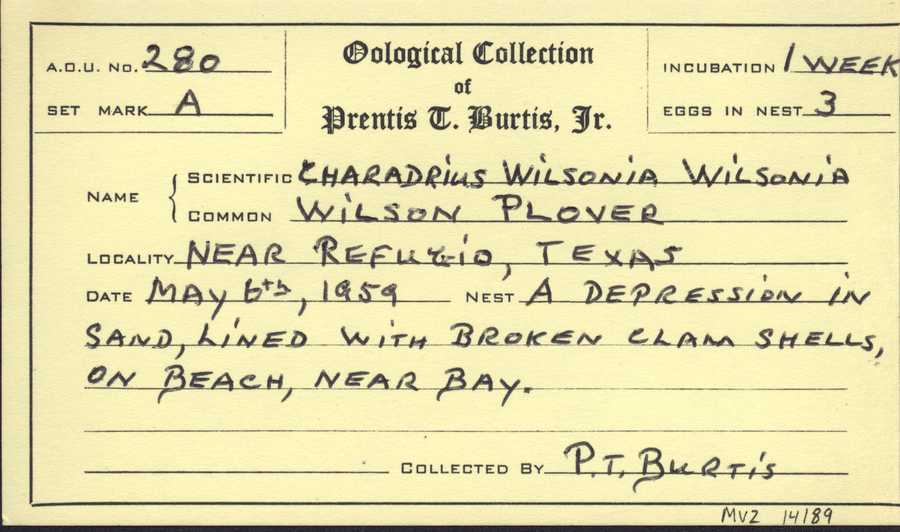 A.O.U. No. 280
Oological Collection
of
Prentis T. Burtis, Jr.
INCUBATION 1 WEEK
SET MARK A
EGGS IN NEST 3
NAME
SCIENTIFIC CHARADRIUS WILSONIA WILSONIA
COMMON WILSON PLOVER
LOCALITY NEAR REFUGIO, TEXAS
DATE MAY 6th, 1959 NEST A DEPRESSION IN
SAND, LINED WITH BROKEN CLAM SHELLS,
ON BEACH, NEAR BAY.
COLLECTED BY P.T. BURTIS
MVZ 14189